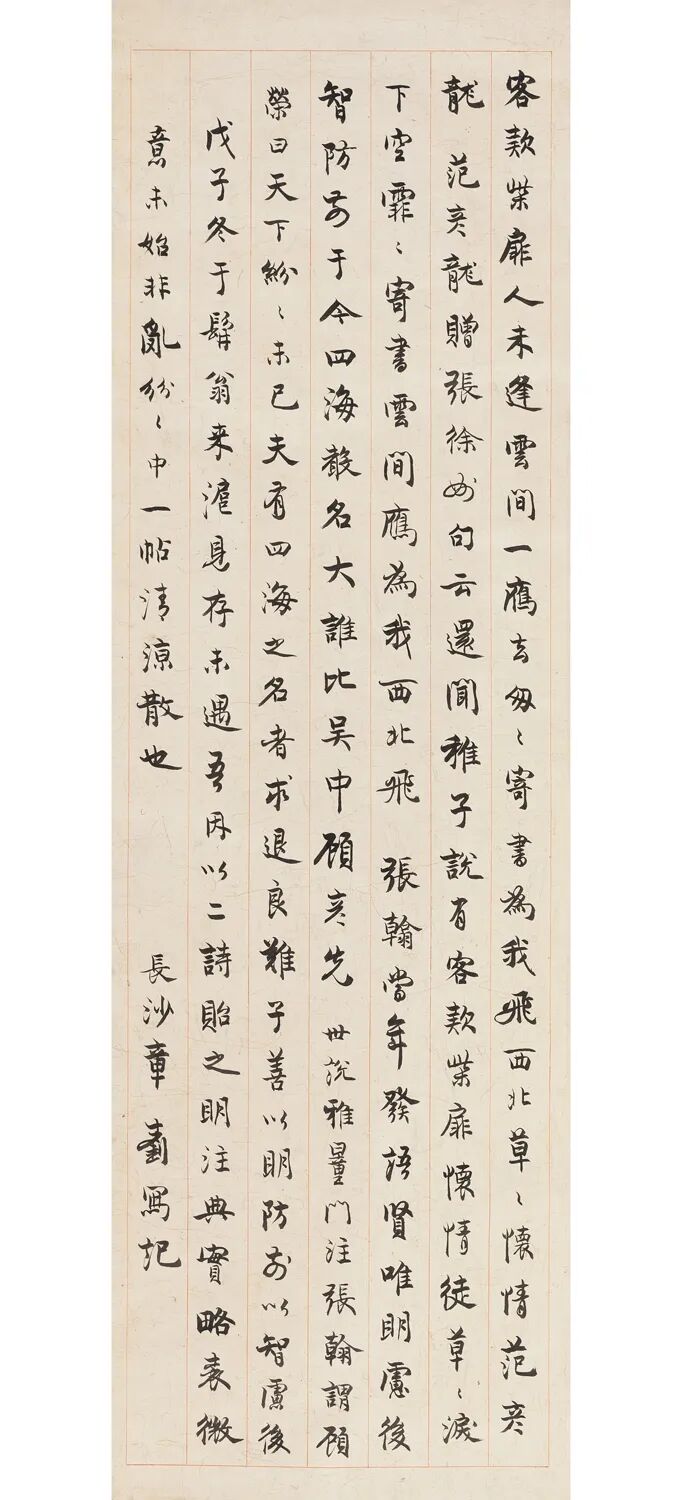 客款柴扉人未逢雲間一鴈去匆〻寄書為我飛西北草〻懷情范彥
龍 范彥龍贈張徐州句云還聞稚子說有客款柴扉懷情徒草〻淚
下空霏〻寄書雲間鴈為我西北飛 張翰當年發語賢唯明慮後
智防前于今四海聲名大誰比吴中顧彥先 世說雅量門注張翰謂顧
榮曰天下紛〻未已夫有四海之名者求退良難子善以明防前以智慮後
戊子冬于髯翁来滬見存未遇吾因以二詩貽之明注典實略表微
意未始非亂紛〻中一帖清涼散也 長沙章士釗寫記